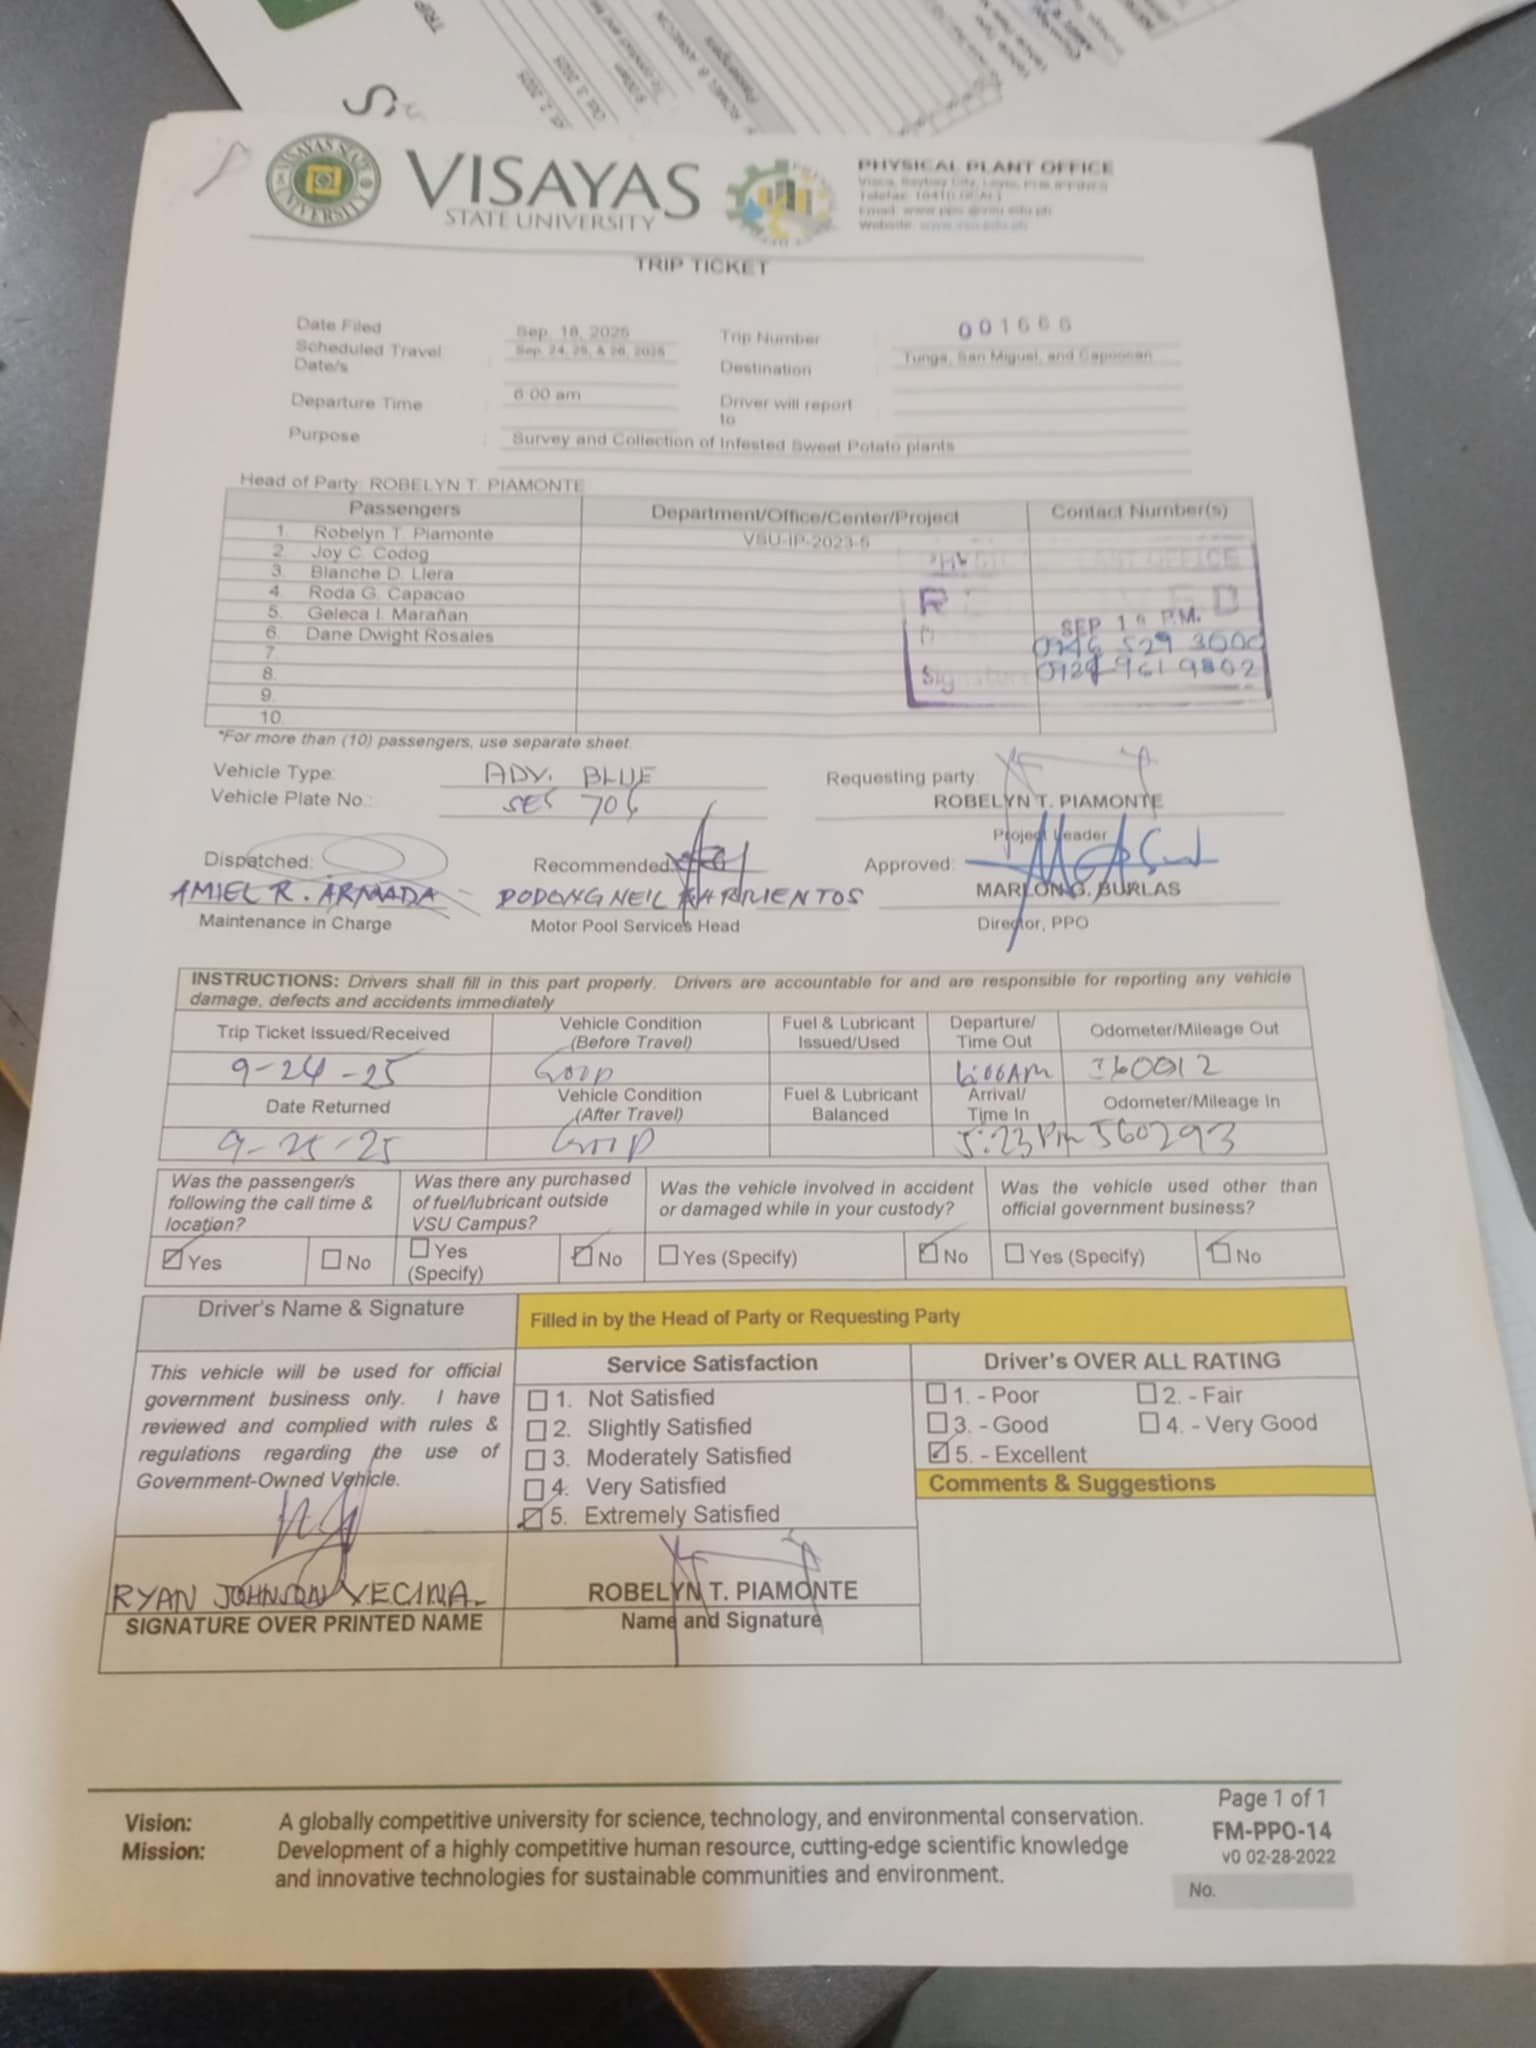 TRIP
VISAYAS STATE UNIVERSITY
VISAYAS
STATE UNIVERSITY
PHYSICAL PLANT OFFICE
Visca, Baybay City, Leyte, PHILIPPINES
Website: www.vsu.edu.ph
TRIP TICKET
Date Filed Sep. 18, 2025 Trip Number 001666
Scheduled Travel Date/s Sep. 24, 25, & 26, 2025 Destination Tunga, San Miguel, and Capoocan
Departure Time : 6:00 am Driver will report to
Purpose : Survey and Collection of Infested Sweet Potato plants
Head of Party: ROBELYN T. PIAMONTE
Passengers Department/Office/Center/Project Contact Number(s)
1. Robelyn T. Piamonte VSU-IP-2023-5
2. Joy C. Codog
3. Blanche D. Llera
4. Roda G. Capacao
5. Geleca I. Marañan
6. Dane Dwight Rosales
7.
8.
9.
10.
OFFICE
SEP P.M.
529
961 9802
*For more than (10) passengers, use separate sheet.
Vehicle Type: ADV. BLUE
Vehicle Plate No.: 706
Requesting party:
ROBELYN T. PIAMONTE
Project Leader
Dispatched: Recommended: Approved:
AMIEL R. ARMADA DODONG NEIL BARRIENTOS MARLON G. BURLAS
Maintenance in Charge Motor Pool Services Head Director, PPO
INSTRUCTIONS: Drivers shall fill in this part properly. Drivers are accountable for and are responsible for reporting any vehicle
damage, defects and accidents immediately
Trip Ticket Issued/Received Vehicle Condition (Before Travel) Fuel & Lubricant Issued/Used Departure/ Time Out Odometer/Mileage Out
9-24-25 GOOD 6:00AM 360012
Date Returned Vehicle Condition (After Travel) Fuel & Lubricant Balanced Arrival/ Time In Odometer/Mileage In
9-25-25 GOOD 5:23 Pm 360293
Was the passenger/s following the call time & location? Was there any purchased of fuel/lubricant outside VSU Campus? Was the vehicle involved in accident or damaged while in your custody? Was the vehicle used other than official government business?
Yes No Yes (Specify) No Yes (Specify) No Yes (Specify) No
Driver's Name & Signature Filled in by the Head of Party or Requesting Party
This vehicle will be used for official
government business only. I have
reviewed and complied with rules &
regulations regarding the use of
Government-Owned Vehicle.
Service Satisfaction
1. Not Satisfied
2. Slightly Satisfied
3. Moderately Satisfied
4. Very Satisfied
5. Extremely Satisfied
Driver's OVER ALL RATING
1. - Poor 2. - Fair
3. - Good 4. - Very Good
5. - Excellent
Comments & Suggestions
RYAN JOHNSON YECINA ROBELYN T. PIAMONTE
SIGNATURE OVER PRINTED NAME Name and Signature
Page 1 of 1
FM-PPO-14
v0 02-28-2022
No.
Vision: A globally competitive university for science, technology, and environmental conservation.
Mission: Development of a highly competitive human resource, cutting-edge scientific knowledge
and innovative technologies for sustainable communities and environment.